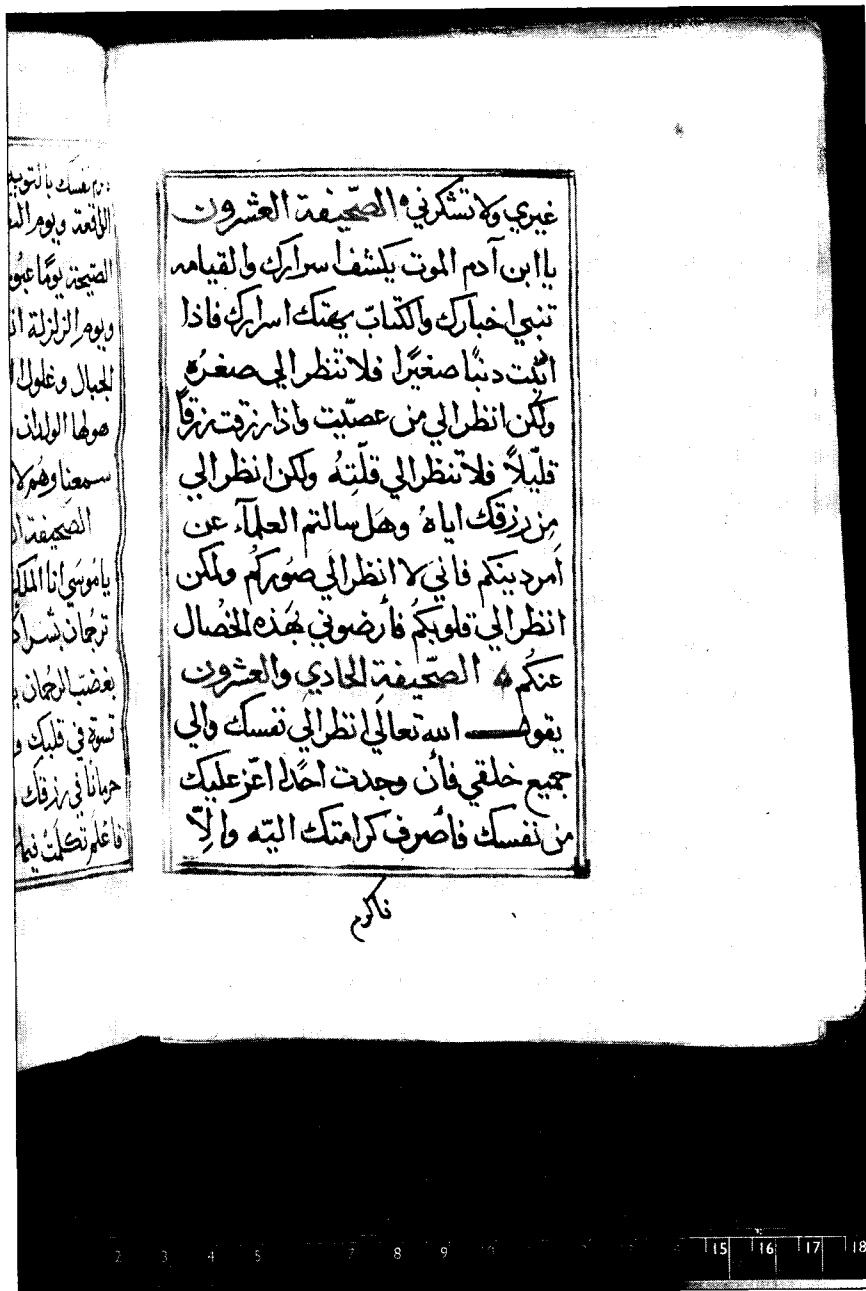 غيري ولا تشكرني ه الصّحيفة العشرون
يا ابن آدم الموت يكشف اسرارك والقيامه
تنبي اخبارك والكتابّ يهتك اسرارك فاذا
اتيّت دنبًا صغيّرا فلا تنظر الي صغرُه
ولكن انظر الي من عصيّت واذا رزقت رزقاً
قليّلاً فلا تنظر الي قلّتِهُ ولكن انظر الي
مِن رزقك اياهُ وهَل سالتم العلمآء عن
اَمر دينكم فاني لا انظر الَي صَوركم ولكن
انظر الي قلوبكمُ فأرضوني بهَذه الخصال
عنكمُ ه الصّحيفةِ الحادي والعشرون
يقول الله تعالَي انظر الَي نفسك والي
جميع خلقي فأن وجدت احدًا اعّز عليك
من نفسك فأصرف كرامتك اليّه والِاّ
فاكرم
نفسك بالتوبة
الواقعة ويوم
الصيحة يومًا عبوسا
ويوم الزلزلة
الجبال وغلول
هولها الولدان
سمعنا وهُم لا
الصَحيفة
يا مُوسَي انا الملك
ترجُمان
بغضب الرحمان
قسوة في قلبك و
حرمانًا في رزقك
فاعلم تكلمت فيما